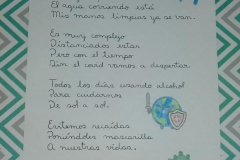 El agua corriendo está
Mis manos limpias ya se van.
Es muy complejo
Distanciados estar
Pero con el tiempo
Sin el covid vamos a despertar.
Todos los días usando alcohol
Para cuidarnos
De sol a sol.
Evitemos movidas
Poniéndoles mascarilla
A nuestras vidas.